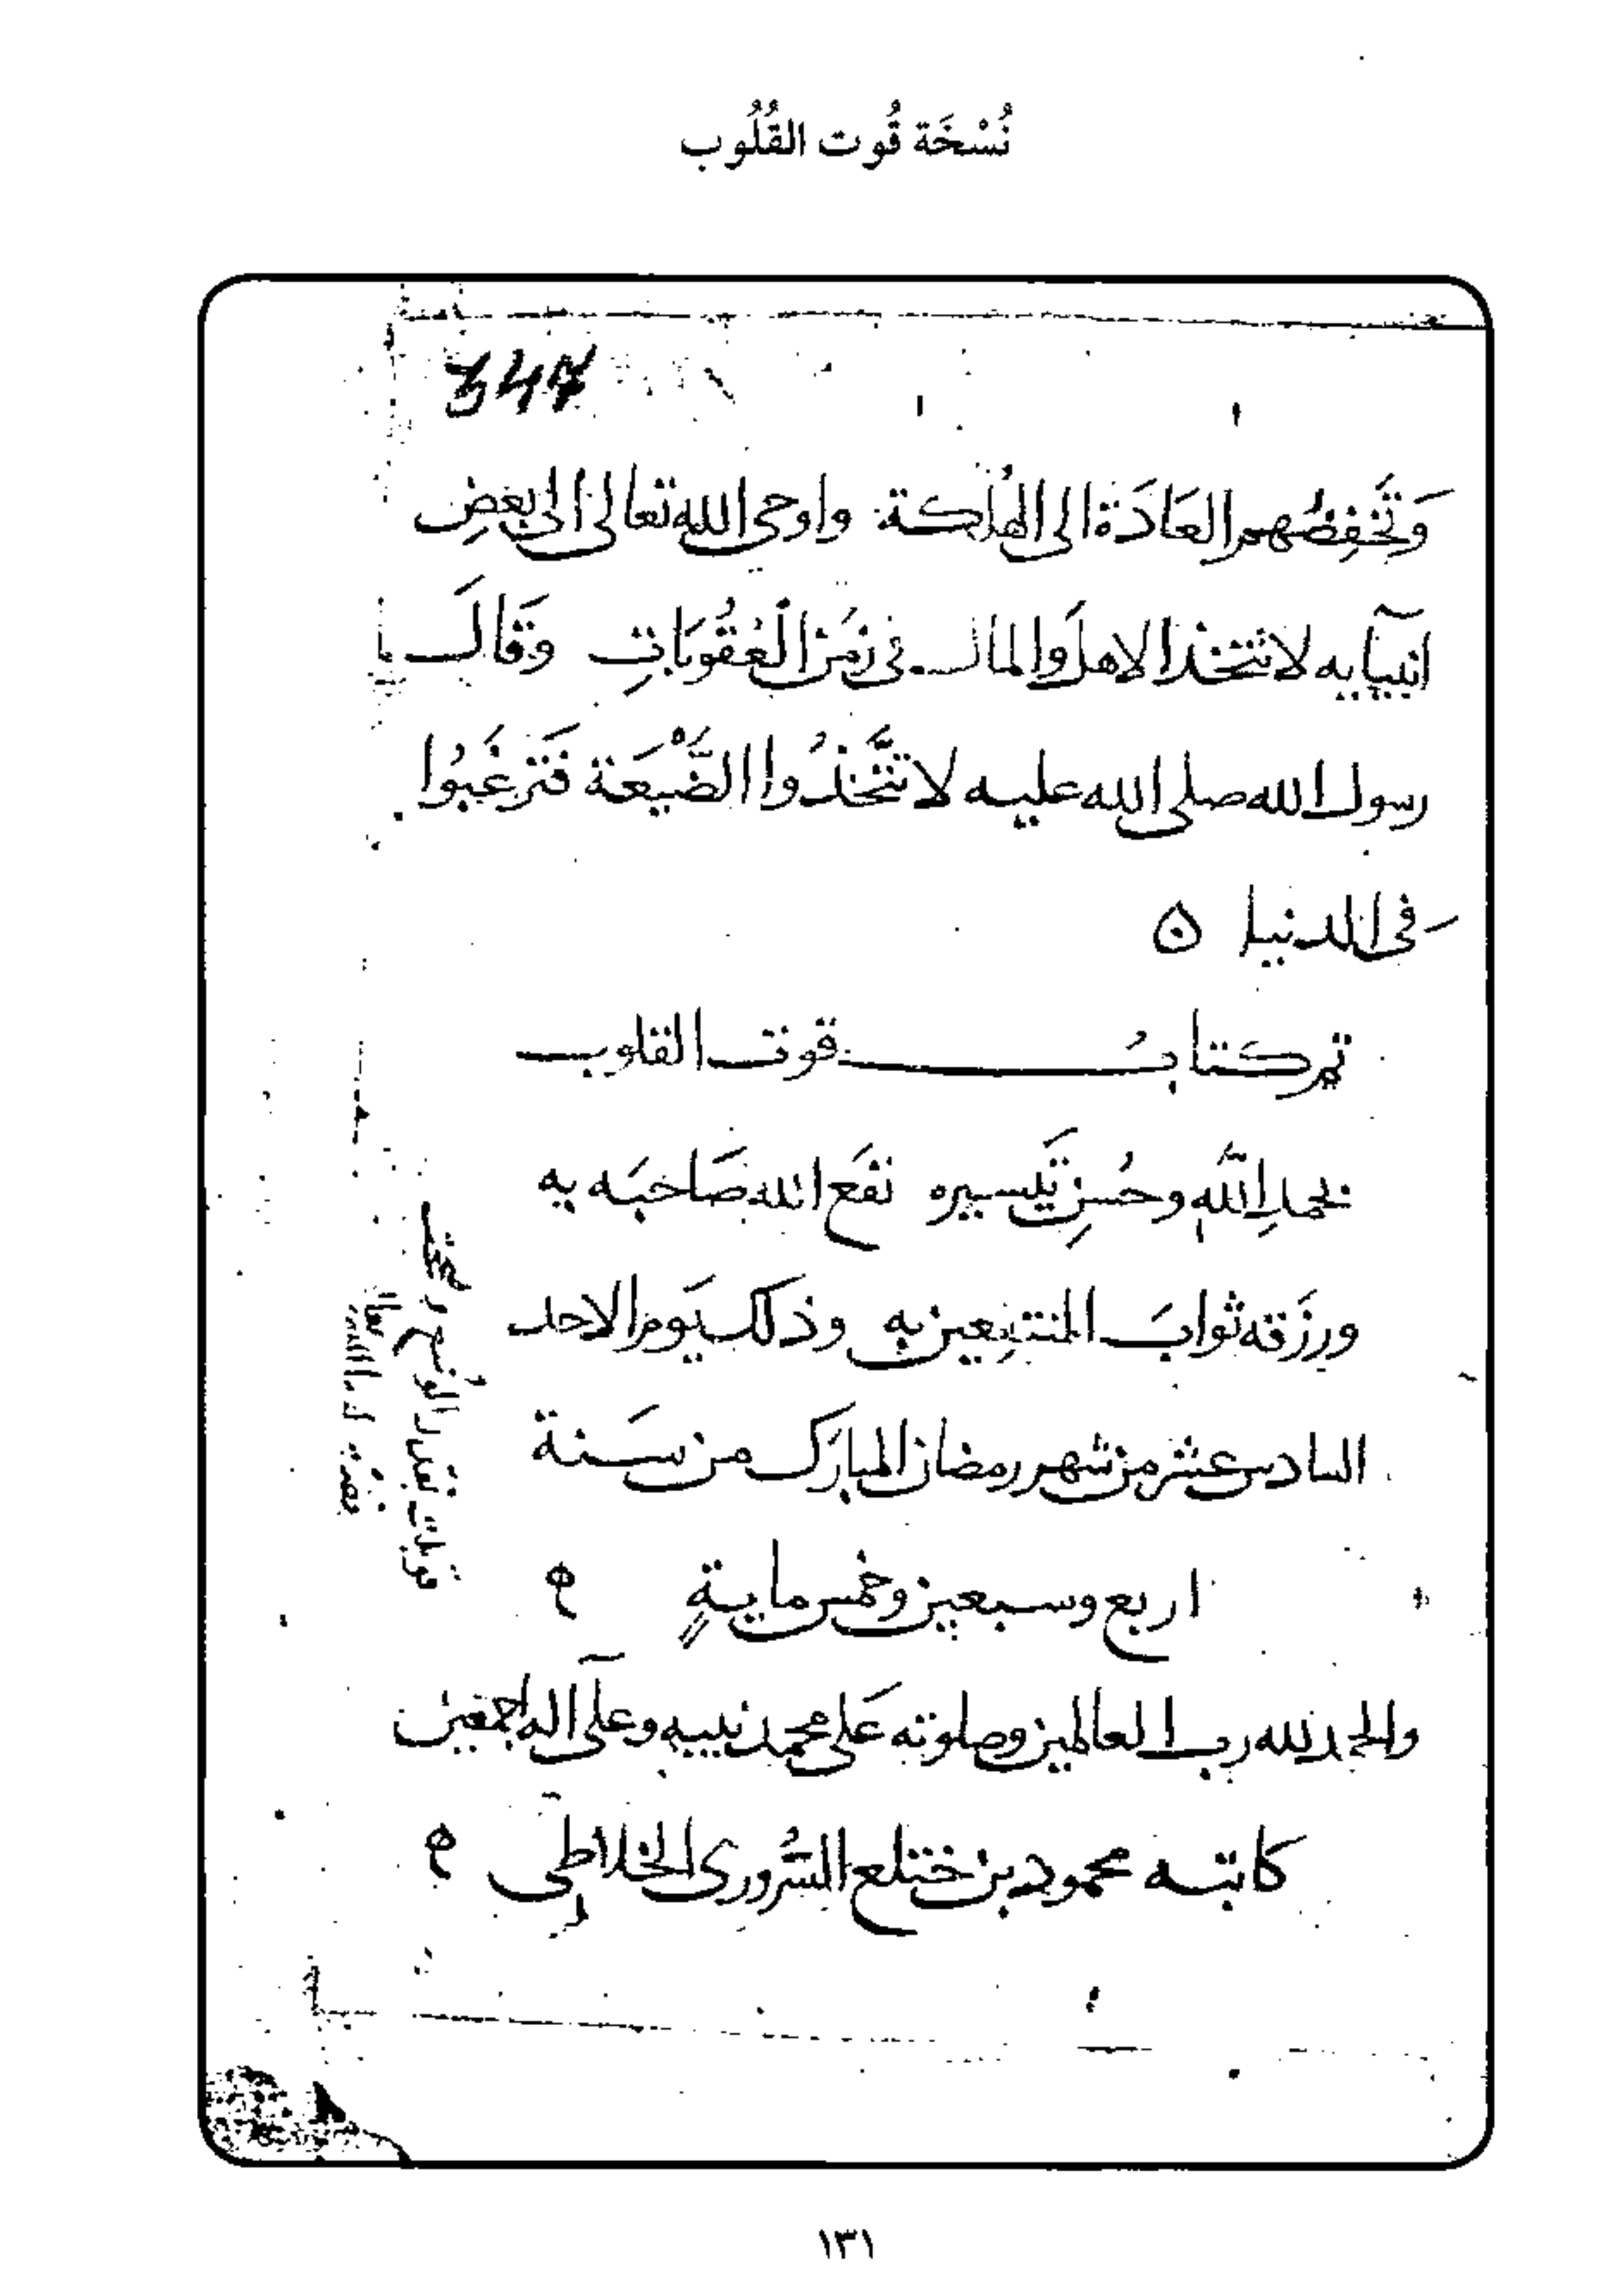 نُسْخَة قُوت القُلُوب
347
وَتَخفِضُهم العَادَة الى الهُلكة واوحى الله تعالى الى بعضِ
انبيآيه لا تتخذ الاهلَ والمال في زمَن العُقُوبَاتِ وَقالَ
رسول الله صلى الله عليه لا تتَّخذُوا الضَّيْعَة فَترغَبُوا
في الدنيا ه
تم كتابُ قوت القلوب
بحمدِ اللَّهِ وحُسنِ تَيسيره نفَع الله صَاحبَه به
ورزَقه ثوابَ المنتفِعين به وذلك يَوم الاحد
السادس عشر من شهر رمضان المبارَك من سَنة
اربع وسبعين وخمس مايةٍ
والحمد لله رب العالمين وصلوته عَلى محمد نبيه وعلَى اله اجمعين
كاتبه محمود بن ختلع السُّرورى الخلاطِى
١٣١